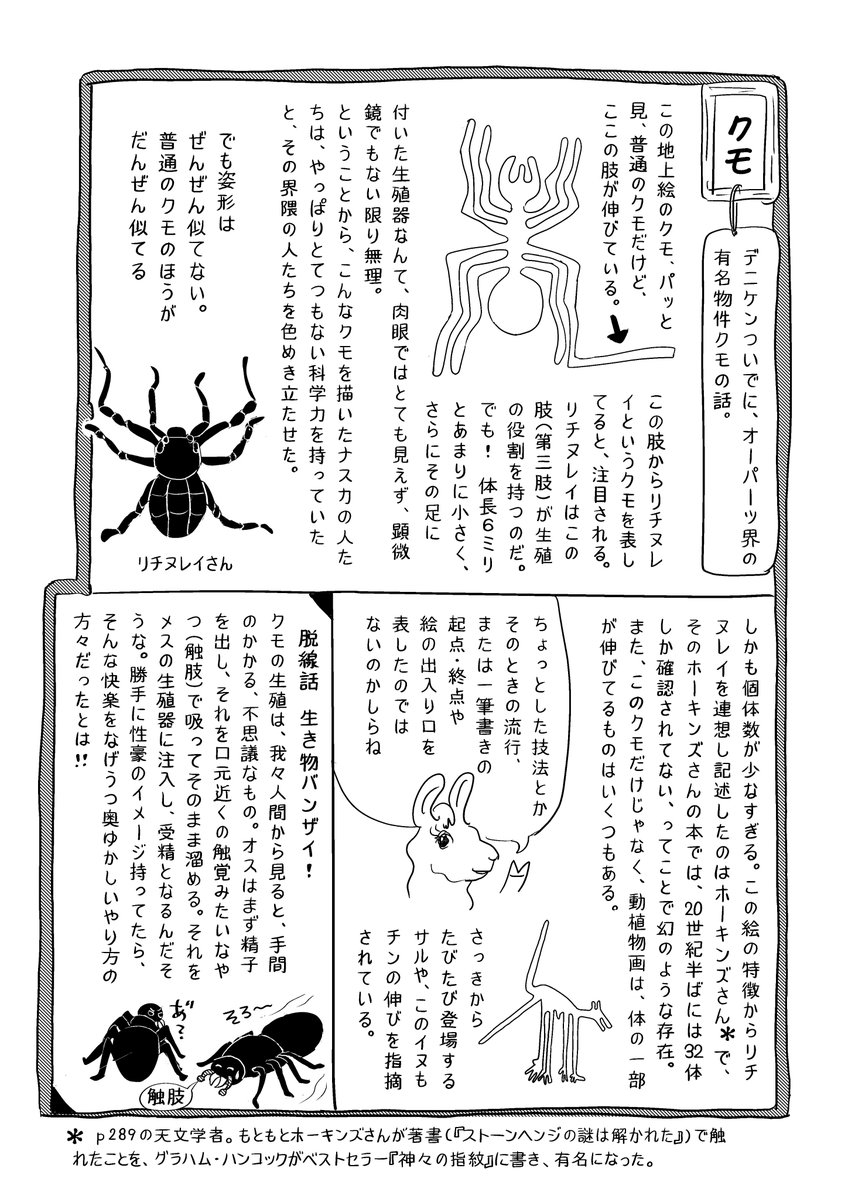 クモ
デニケンついでに、オーパーツ界の
有名物件クモの話。
この地上絵のクモ、パッと
見、普通のクモだけど、
ここの肢が伸びている。
この肢からリチヌレ
イというクモを表し
てると、注目される。
リチヌレイはこの
肢(第三肢)が生殖
の役割を持つのだ。
でも！体長6ミリ
とあまりに小さく、
さらにその足に
付いた生殖器なんて、肉眼ではとても見えず、顕微
鏡でもない限り無理。
ということから、こんなクモを描いたナスカの人た
ちは、やっぱりとてつもない科学力を持っていた
と、その界隈の人たちを色めき立たせた。
でも姿形は
ぜんぜん似てない。
普通のクモのほうが
だんぜん似てる
リチヌレイさん
しかも個体数が少なすぎる。この絵の特徴からリチ
ヌレイを連想し記述したのはホーキンズさん*で、
そのホーキンズさんの本では、20世紀半ばには32体
しか確認されてない、ってことで幻のような存在。
また、このクモだけじゃなく、動植物画は、体の一部
が伸びてるものはいくつもある。
ちょっとした技法とか
そのときの流行、
または一筆書きの
起点・終点や
絵の出入り口を
表したのでは
ないのかしらね
さっきから
たびたび登場する
サルや、このイヌも
チンの伸びを指摘
されている。
脱線話 生き物バンザイ！
クモの生殖は、我々人間から見ると、手間
のかかる、不思議なもの。オスはまず精子
を出し、それを口元近くの触覚みたいなや
つ(触肢)で吸ってそのまま溜める。それを
メスの生殖器に注入し、受精となるんだそ
うな。勝手に性豪のイメージ持ってたら、
そんな快楽をなげうつ奥ゆかしいやり方の
方々だったとは!!
そろ〜
あ゛?
触肢
* p289の天文学者。もともとホーキンズさんが著書(『ストーンヘンジの謎は解かれた』)で触
れたことを、グラハム・ハンコックがベストセラー『神々の指紋』に書き、有名になった。